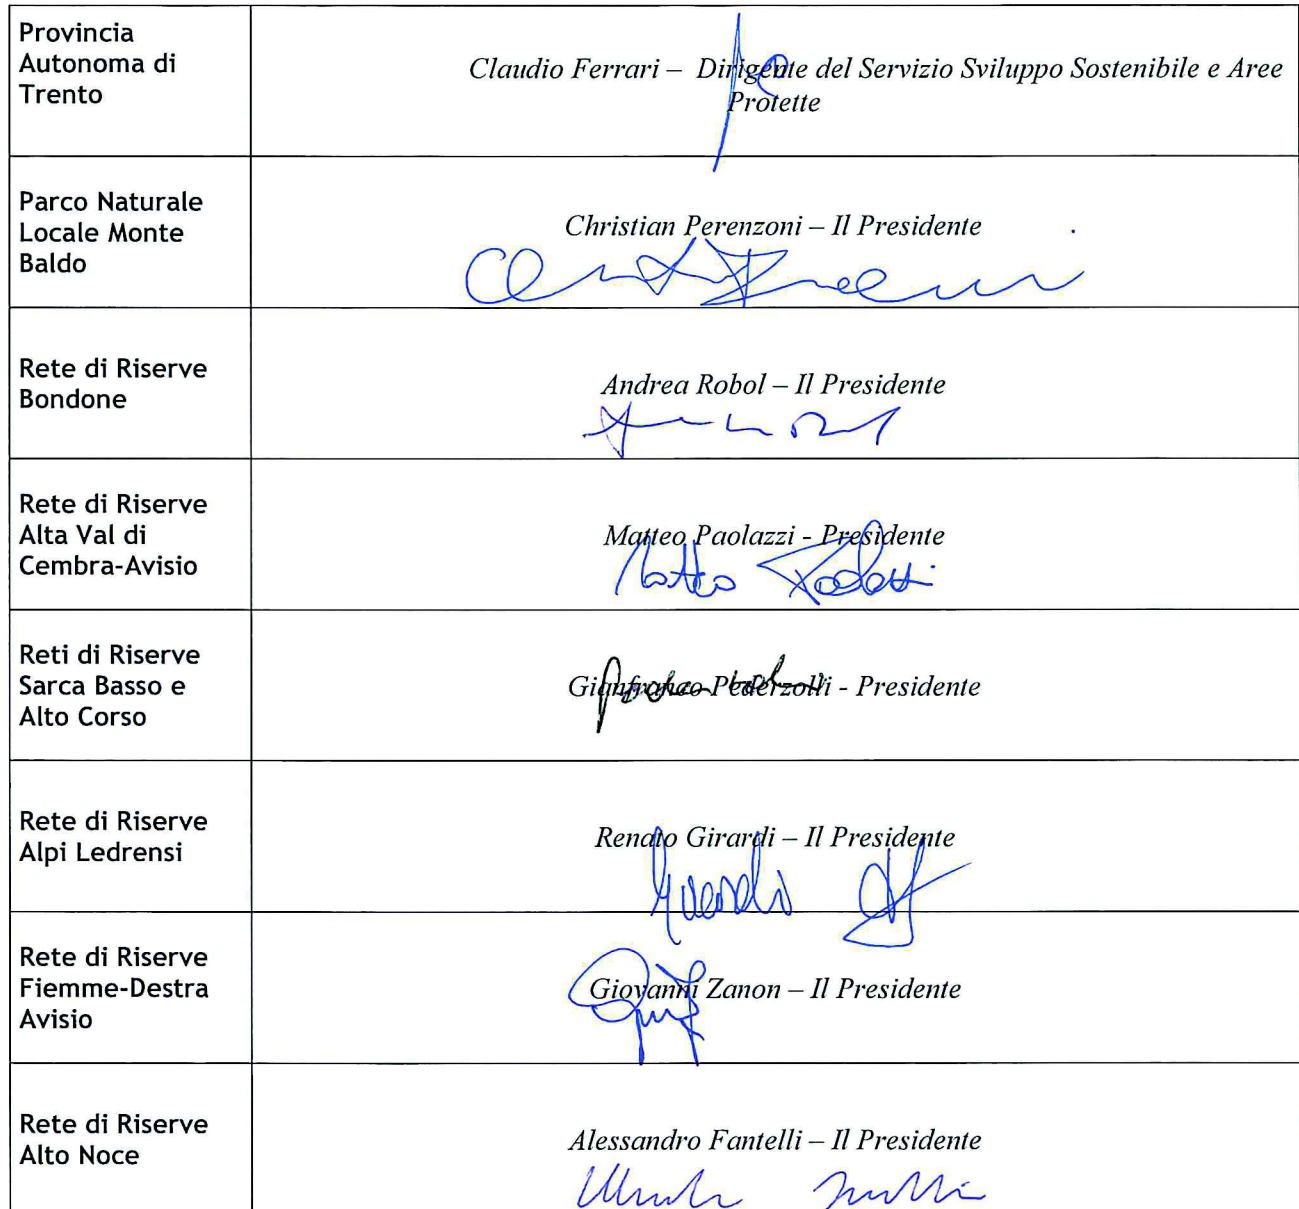 Provincia
Autonoma di
Trento
Claudio Ferrari – Dirigente del Servizio Sviluppo Sostenibile e Aree
Protette
Parco Naturale
Locale Monte
Baldo
Christian Perenzoni – Il Presidente
Rete di Riserve
Bondone
Andrea Robol – Il Presidente
Rete di Riserve
Alta Val di
Cembra-Avisio
Matteo Paolazzi - Presidente
Matteo Paolazzi
Reti di Riserve
Sarca Basso e
Alto Corso
Gianfranco Pederzolli - Presidente
Rete di Riserve
Alpi Ledrensi
Renato Girardi – Il Presidente
Rete di Riserve
Fiemme-Destra
Avisio
Giovanni Zanon – Il Presidente
Rete di Riserve
Alto Noce
Alessandro Fantelli – Il Presidente